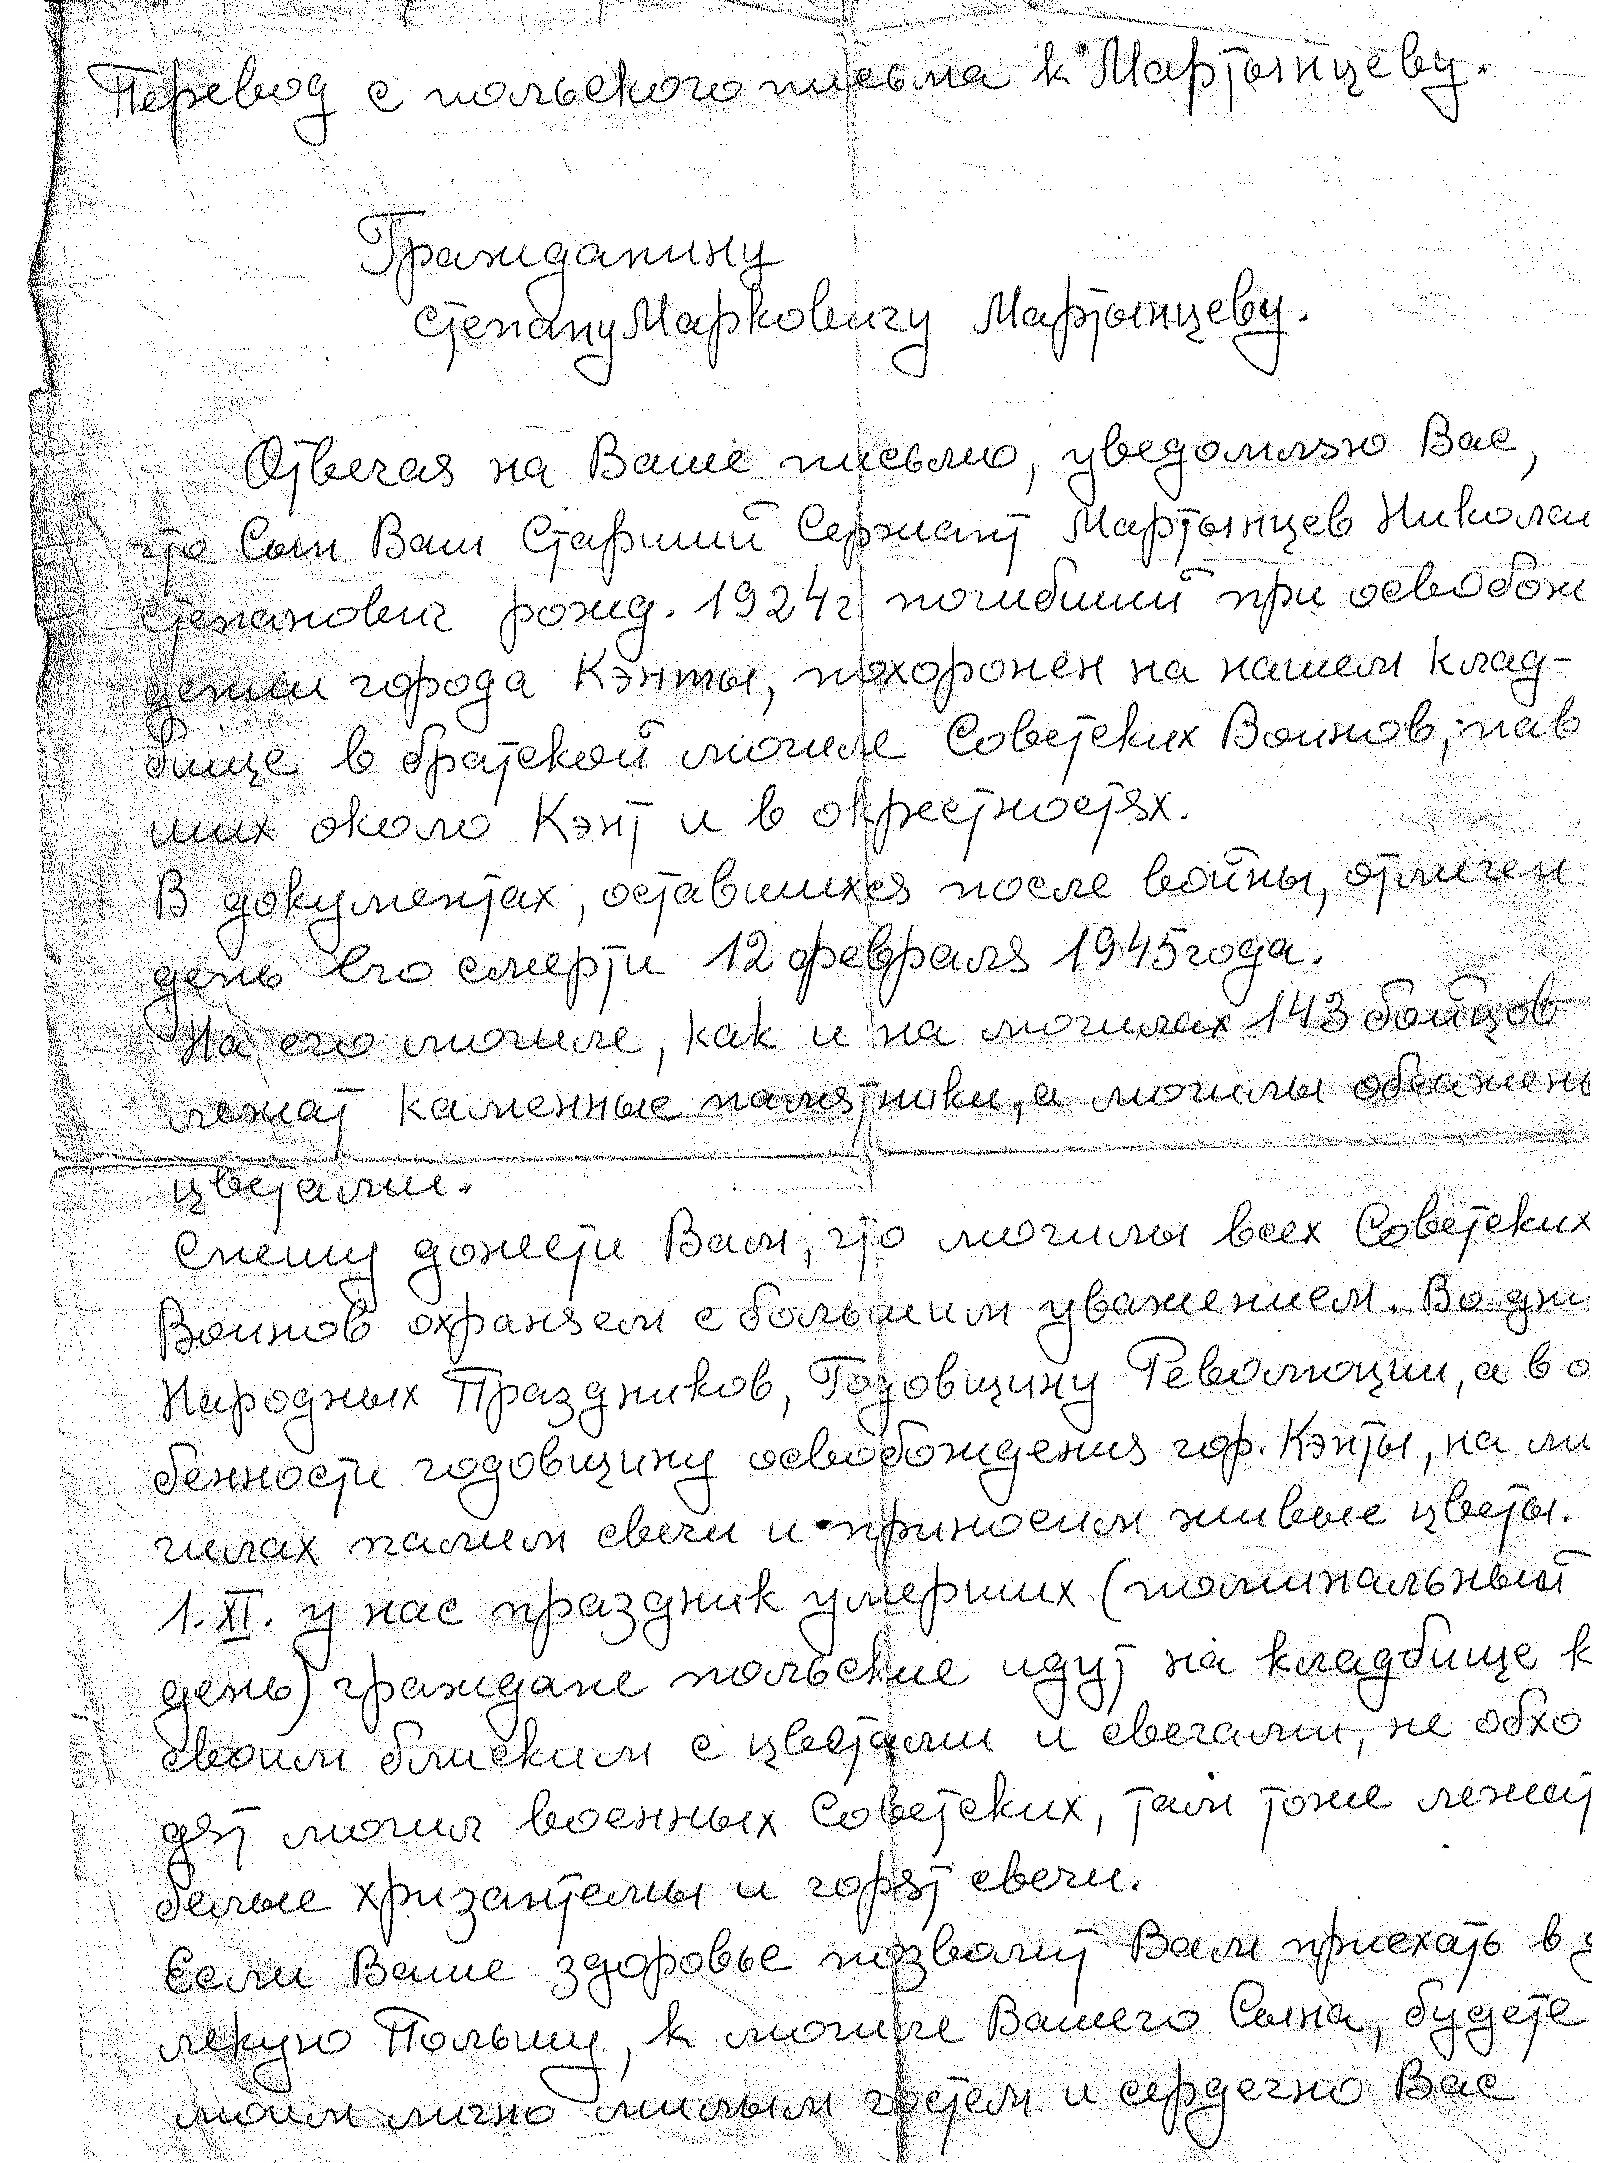 Перевод с польского письма к Мартынцеву.
Гражданину
Степану Марковичу Мартынцеву.
Отвечая на Ваше письмо, уведомляю Вас,
что Сын Ваш Старший Сержант Мартынцев Николай
Степанович рожд. 1924г погибший при освобож
дении города Кэнты, похоронен на нашем клад-
бище в братской могиле Советских Воинов, пав
ших около Кэнт и в окрестностях.
В документах, оставшихся после войны, отмечен
день Его смерти 12 февраля 1945 года.
На его могиле, как и на могилах 143 бойцов
лежат каменные памятники, а могилы обсажены
цветами.
Спешу донести Вам, что могилы всех Советских
Воинов охраняем с большим уважением. Во дни
Народных Праздников, Годовщину Революции, а в о
бенности годовщину освобождения гор. Кэнты, на мо
гилах палим свечи и приносим живые цветы.
1. XI. у нас праздник умерших (поминальный
день) граждане польские идут на кладбище к
своим близким с цветами и свечами, не обхо
дят могил военных Советских, там тоже лежат
белые хризантемы и горят свечи.
Если Ваше здоровье позволит Вам приехать в д
лекую Польшу, к могиле Вашего Сына, будете
моим лично милым гостем и сердечно Вас